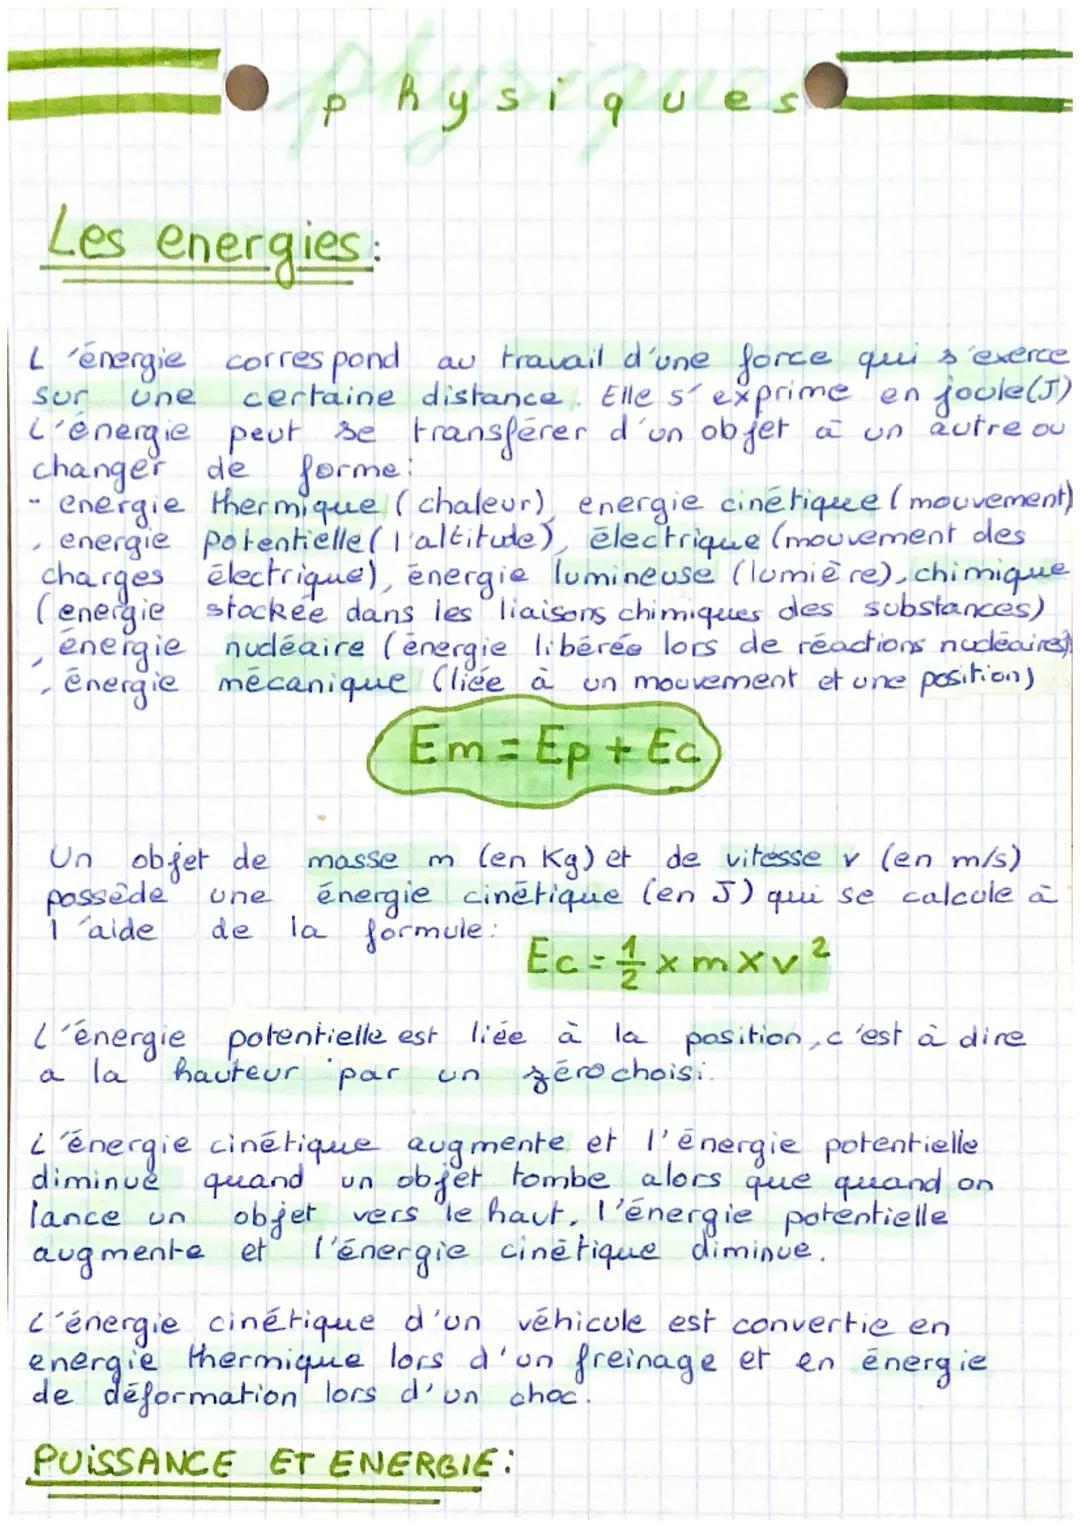 physiques
physiques
Les energies:
L'énergie correspond au travail d'une force qui s'exerce
sur une certaine distance. Elle s'exprime en joule(J)
L'énergie peut se transférer d'un objet à un autre ou
changer de forme:
- energie thermique (chaleur), energie cinétique (mouvement)
, energie potentielle (l'altitude), électrique (mouvement des
charges électrique), énergie lumineuse (lumière), chimique
(energie stockée dans les liaisons chimiques des substances)
, énergie nucléaire (énergie libérée lors de réactions nucléaires)
, énergie mécanique (liée à un mouvement et une position)
Em = Ep + Ec
Un objet de masse m (en Kg) et de vitesse v (en m/s)
possède une énergie cinétique (en J) qui se calcule à
l'aide de la formule:
Ec = 1/2 x m x v²
L'énergie potentielle est liée à la position, c'est à dire
a la hauteur par un zéro choisi.
L'énergie cinétique augmente et l'énergie potentielle
diminue quand un objet tombe alors que quand on
lance un objet vers le haut, l'énergie potentielle
augmente et l'énergie cinétique diminue.
L'énergie cinétique d'un véhicule est convertie en
energie thermique lors d'un freinage et en énergie
de déformation lors d'un choc.
PUISSANCE ET ENERGIE: